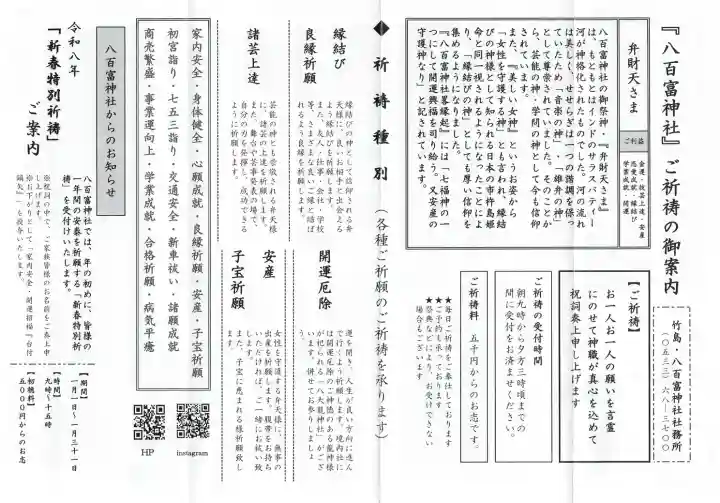 『八百富神社』ご祈祷の御案内
竹島・八百富神社社務所
(〇五三三)六八ー三七〇〇
弁財天さま
ご利益
金運・技芸上達・安産
商売繁盛・縁結び
学業成就・開運
八百富神社の御祭神・『弁財天さま』
は、もともとはインドのサラスバティー
河が神格化されたものでした。河の流れ
は美しく、せせらぎは一つの階調を保っ
ていたため「音楽の神」・「雄弁の神」
として尊崇されていました。そのことか
ら、芸能の神・学問の神として今も信仰
されています。
また、『美しい女神』というお姿から
「女性を守護する神」とも言われ、縁結
びの神様として知られる日本の市杵島姫
命と同一視されるようになったことによ
り、「縁結びの神」としても厚い信仰を
集めるようになりました。
『八百富神社略縁起』には「七福神の一
つにして開運興福を司り給う。又安産の
守護神なり」と記されています。
【ご祈祷】
お一人お一人の願いを言霊
にのせて神職が真心を込めて
祝詞奏上申し上げます
ご祈祷の受付時間
朝九時から夕方三時頃までの
間に受付をお済ませください。
ご祈祷料 五千円からのお志です。
★毎日ご祈祷をご奉仕しております
★ご予約も承っております
★祭典などにより、お受けできない
場合もございます
◆祈祷種別(各種ご祈願のご祈祷を承ります)
縁結び
良縁祈願
縁結びの神として信仰される弁
天様に、良いお相手と出会える
よう縁結びを祈願します。
また、友人・仕事・会社・学校
等、さまざまな良いご縁と結ば
れるよう良縁を祈願します。
諸芸上達
芸能の神とも崇敬される弁天様
に、諸芸の上達を祈願します。
また、舞台や芸事発表の場で、
自分の力を発揮し、成功できる
ように祈願します。
開運厄除
運を開き、人生が良い方向に進ん
で行くよう祈願します。境内社に
は開運厄除のご神徳のある龍神様
が祀られる『八大龍神社』がござ
います。併せてお参りしましょ
う。
安産
子宝祈願
女性を守護する弁天様に、無事の
出産を祈願します。腹帯をお持ち
いただければ、ご一緒にお祓い致
します。
また、子宝に恵まれる様祈願致し
ます。
家内安全・身体健全・心願成就・良縁祈願・安産・子宝祈願
初宮詣り・七五三詣り・交通安全・新車祓い・諸願成就
商売繁盛・事業運向上・学業成就・合格祈願・病気平癒
instagram
HP
八百富神社からのお知らせ
令和八年
「新春特別祈祷」
ご案内
八百富神社では、年の初めに、皆様の
一年間の安泰を祈願する「新春特別祈
祷」を受付けいたします。
※祝詞の中で、ご家族皆様のお名前をご奏上申
し上げます。
※お下がりとして「家内安全・開運招福」「台付
鏑矢」」を授与いたします。
【期間】
一月一日～一月三十一日
【時間】
九時～十五時
【初穂料】
五〇〇〇円からのお志